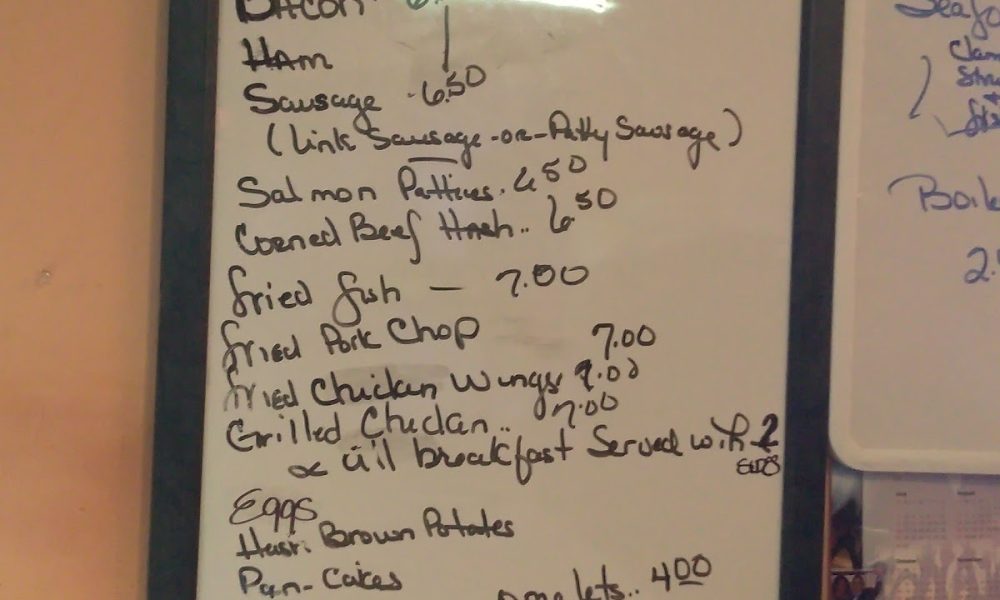 Bacon 6.
Ham
Sausage - 6.50
(Link Sausage -or- Patty Sausage)
Salmon Patties. 6.50
Corned Beef Hash.. 6.50
Fried fish — 7.00
Fried Pork Chop 7.00
Fried Chicken Wings 7.00
Grilled Chicken.. 7.00
breakfast Served with 2
EGGS
Eggs
Hash Brown Potates
Pan-Cakes
omelets.. 4.00
Boile
2.